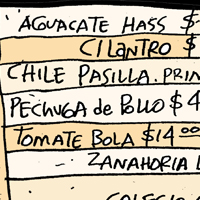 AGUACATE HASS $
CILANTRO $
CHILE PASILLA. PRIN
PECHUGA de POLLO $4
TOMATE BOLA $14.00
ZANAHORIA L